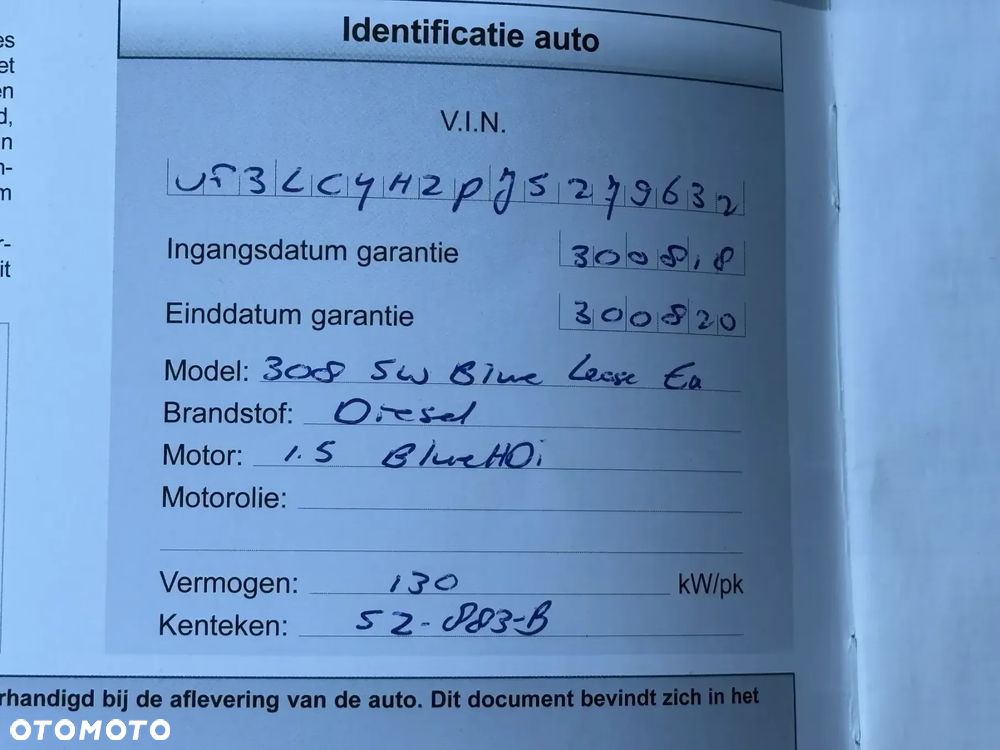 es
et
en
d,
n
n-
m
r-
it
Identificatie auto
V.I.N.
VF3LCYHZPJS279632
Ingangsdatum garantie 300818
Einddatum garantie 300820
Model: 308 SW Blue Lease Ex
Brandstof: Diesel
Motor: 1.5 BlueHDi
Motorolie:
Vermogen: 130 kW/pk
Kenteken: SZ-883-B
rhandigd bij de aflevering van de auto. Dit document bevindt zich in het
OTOMOTO